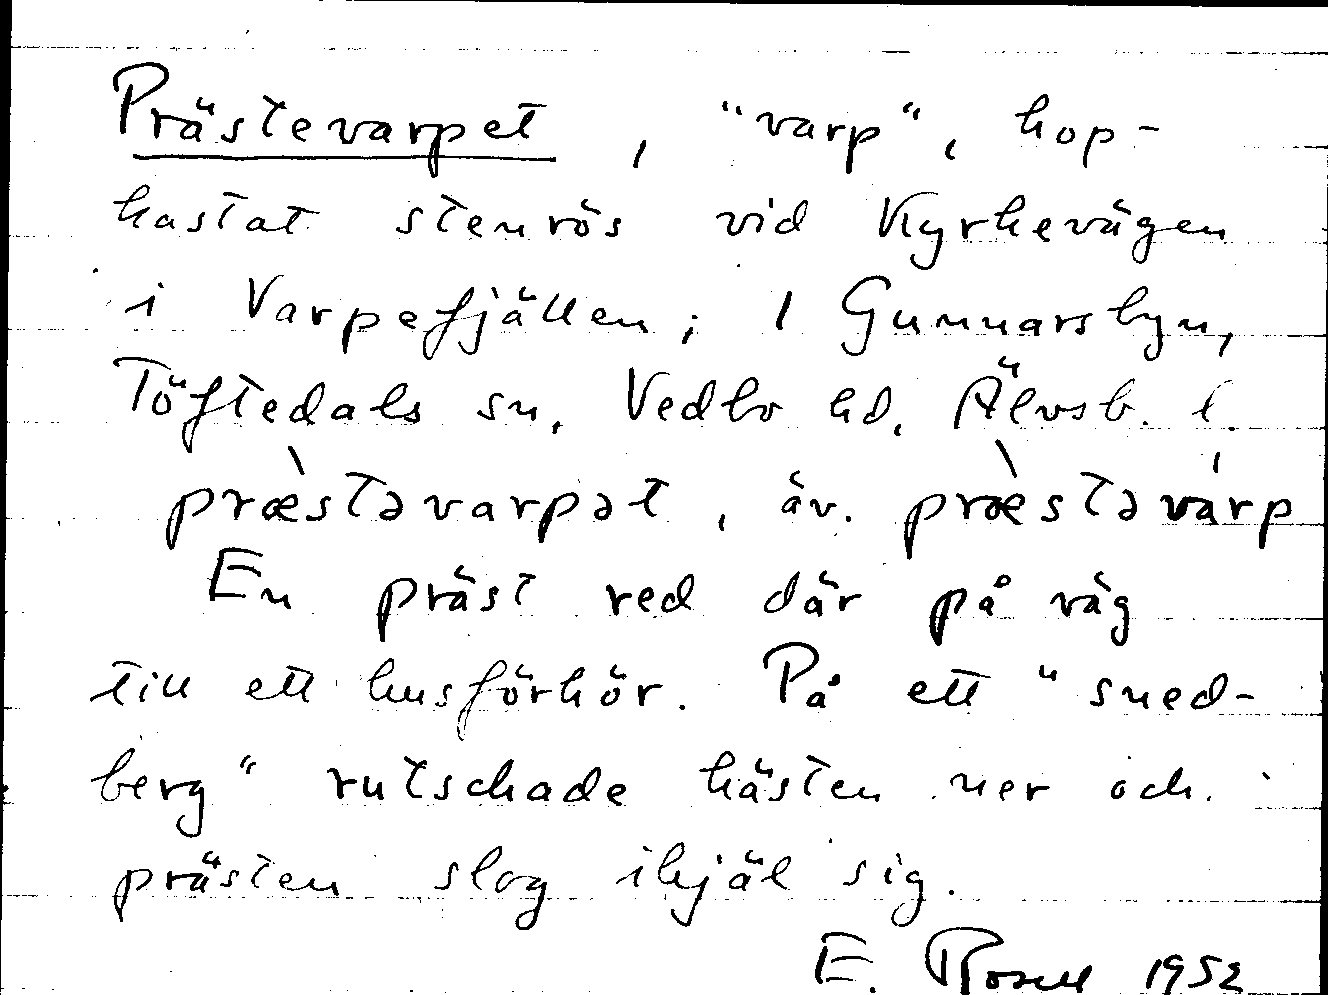 Prästevarpet, "varp", hop-
kastat stenrös vid Kyrkevägen
i Varpefjällen; 1 Gunnarsbyn,
Töftedals sn, Vedbo hd, Älvsb. l.
præ̀stəvarpət, äv. præ̀stəvárp
En präst red där på väg
till ett husförhör. På ett "sned-
berg" rutschade hästen ner och
prästen slog ihjäl sig.
E. Rosell 1952